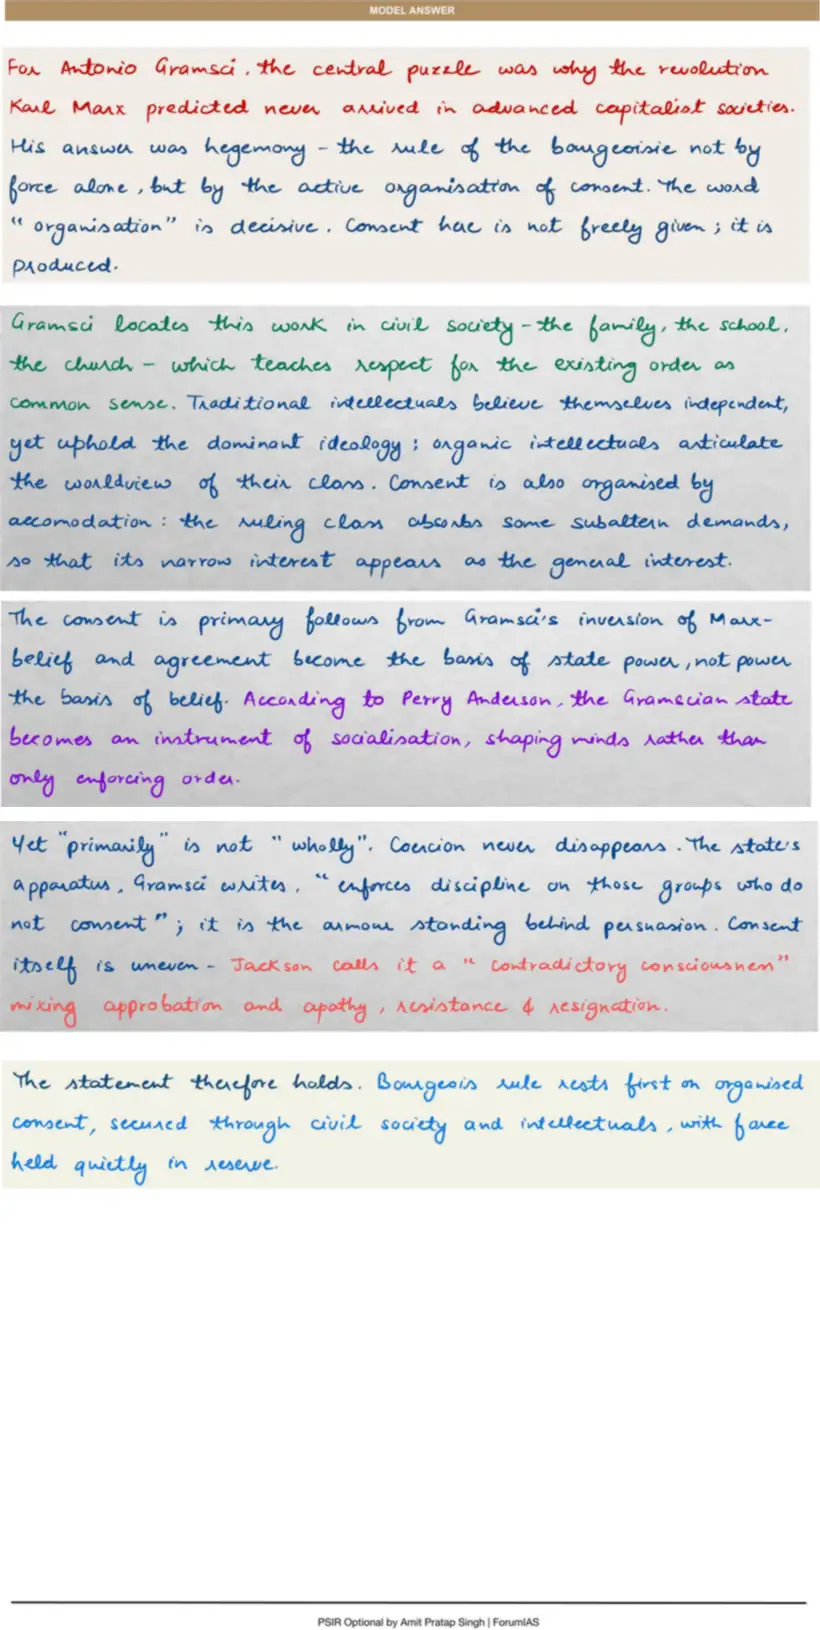 MODEL ANSWER
For Antonio Gramsci, the central puzzle was why the revolution
Karl Marx predicted never arrived in advanced capitalist societies.
His answer was hegemony – the rule of the bourgeoisie not by
force alone, but by the active organisation of consent. The word
"organisation" is decisive. Consent here is not freely given; it is
produced.
Gramsci locates this work in civil society – the family, the school,
the church – which teaches respect for the existing order as
common sense. Traditional intellectuals believe themselves independent,
yet uphold the dominant ideology; organic intellectuals articulate
the worldview of their class. Consent is also organised by
accomodation: the ruling class absorbs some subaltern demands,
so that its narrow interest appears as the general interest.
The consent is primary follows from Gramsci's inversion of Marx-
belief and agreement become the basis of state power, not power
the basis of belief. According to Perry Anderson, the Gramscian state
becomes an instrument of socialisation, shaping minds rather than
only enforcing order.
Yet "primarily" is not "wholly". Coercion never disappears. The state's
apparatus, Gramsci writes, "enforces discipline on those groups who do
not consent"; it is the armour standing behind persuasion. Consent
itself is uneven – Jackson calls it a "contradictory consciousness"
mixing approbation and apathy, resistance & resignation.
The statement therefore holds. Bourgeois rule rests first on organised
consent, secured through civil society and intellectuals, with force
held quietly in reserve.
PSIR Optional by Amit Pratap Singh | ForumIAS